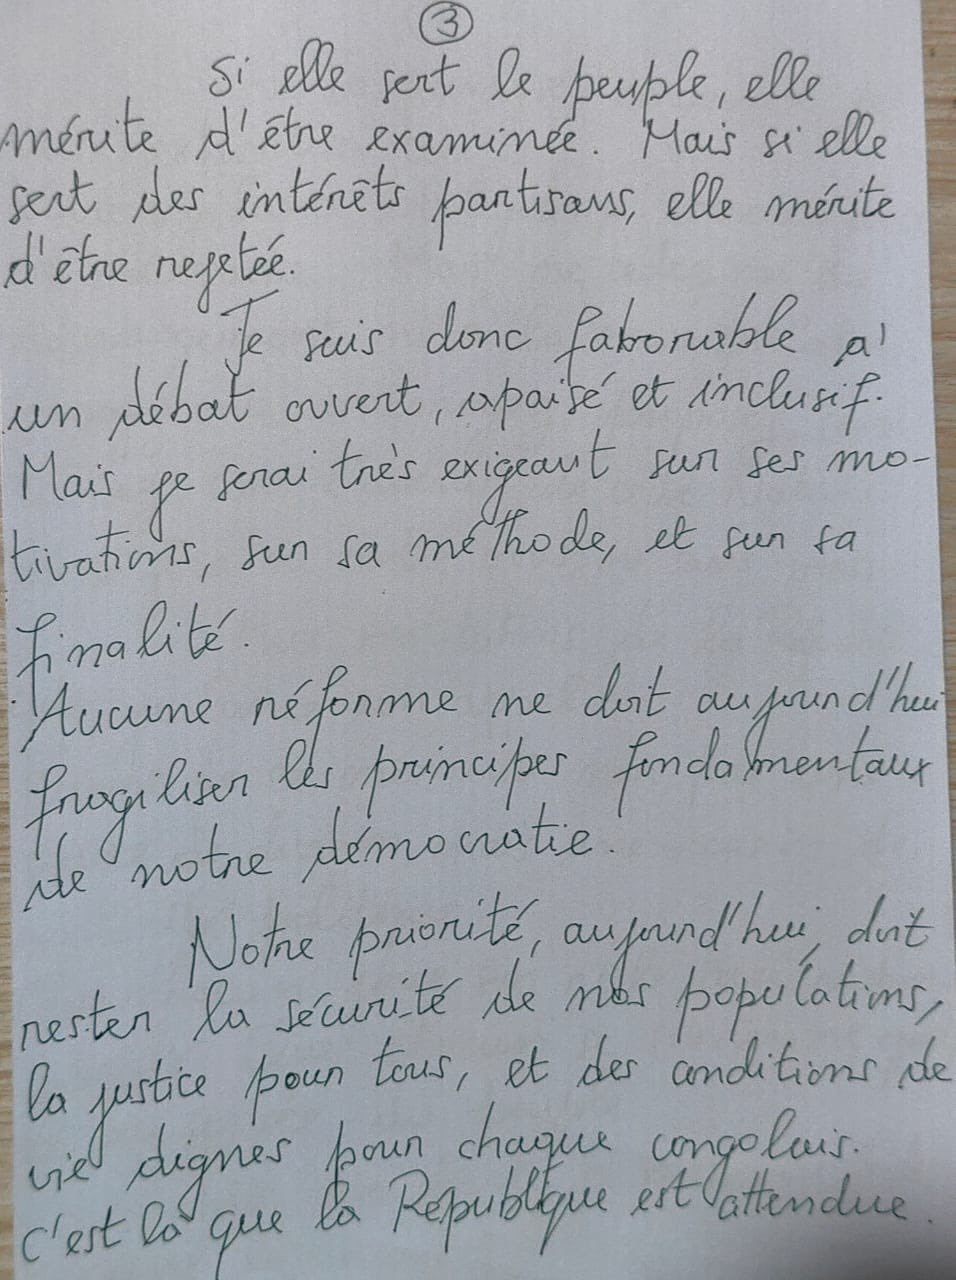 3
Si elle sert le peuple, elle
mérite d'être examinée. Mais si elle
sert des intérêts partisans, elle mérite
d'être rejetée.
Je suis donc favorable à
un débat ouvert, apaisé et inclusif.
Mais je serai très exigeant sur ses mo-
tivations, sur sa méthode, et sur sa
finalité.
Aucune réforme ne doit aujourd'hui
fragiliser les principes fondamentaux
de notre démocratie.
Notre priorité, aujourd'hui, doit
rester la sécurité de nos populations,
la justice pour tous, et des conditions de
vie dignes pour chaque congolais.
c'est là que la République est attendue.